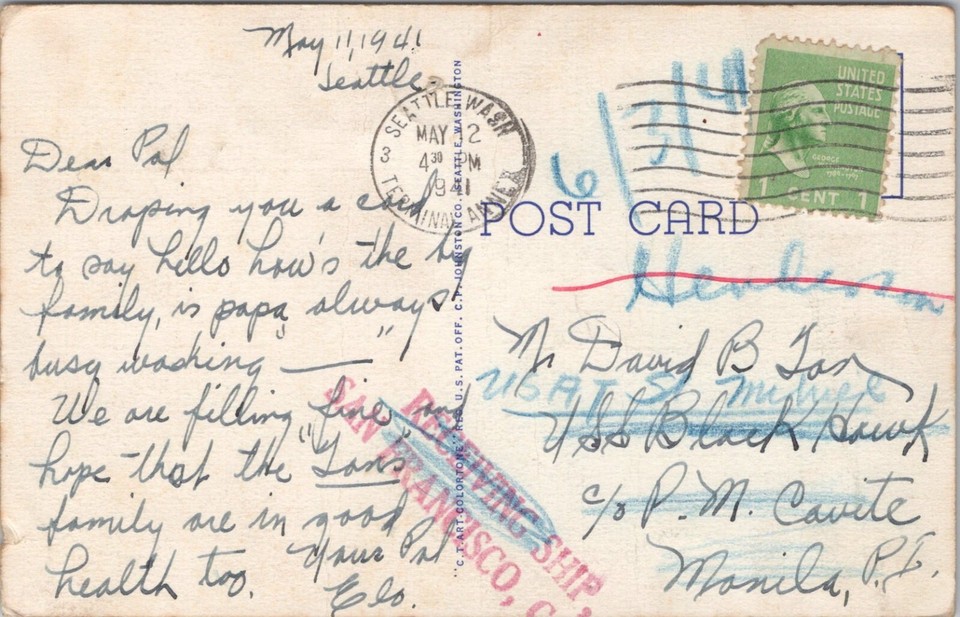 May 11, 1941
Seattle
Dear Pal
Droping you a card
to say hello how's the big
family, is papa always
busy washing — "
We are filling "fine" and
hope that the Tans
family are in good
health too. Your Pal
Elo.
SEATTLE, WASH.
MAY 12
4 30 PM
1941
3
TERMINAL ANNEX
UNITED
STATES
POSTAGE
GEORGE
1 CENT 1
6/3/41
POST CARD
Henderson
Mr David B Tan
USAT St Mihiel
USS Black Hawk
c/o P. M. Cavite
Manila, P.I.
RECEIVING SHIP,
SAN FRANCISCO, C
"C.T. ART-COLORTONE" REG. U.S. PAT. OFF. C.P. JOHNSTON CO., SEATTLE, WASHINGTON